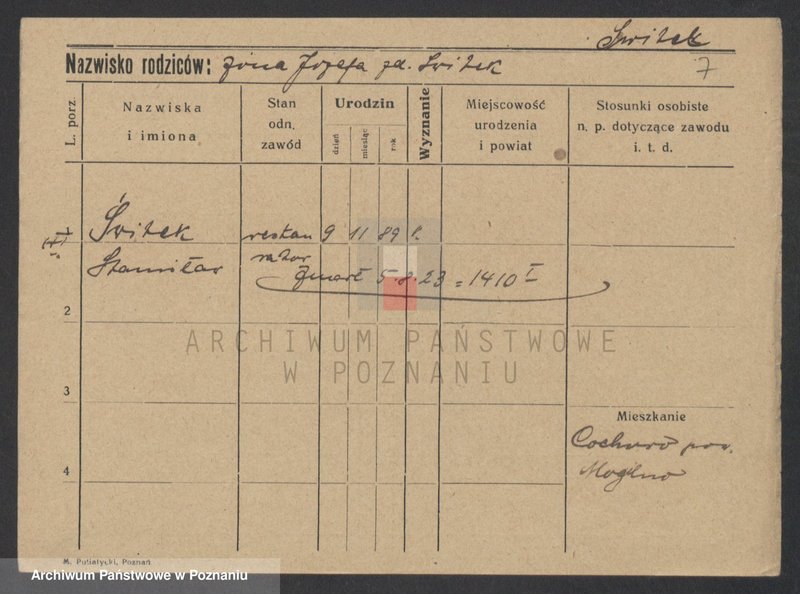 Świtek
Nazwisko rodziców: żona Józefa zd. Świtek
7
L. porz
Nazwiska
i imiona
Stan
odn.
zawód
Urodzin
dzień
miesiąc
rok
Wyznanie
Miejscowość
urodzenia
i powiat
Stosunki osobiste
n. p. dotyczące zawodu
i. t. d.
Świtek restau 9 11 89
Stanisław rator
zmarł 5.8.23 = 1410 I
2
ARCHIWUM PAŃSTWOWE
W POZNANIU
3
Mieszkanie
pow.
4
Mogilno
M. Putiatycki, Poznań
Archiwum Państwowe w Poznaniu